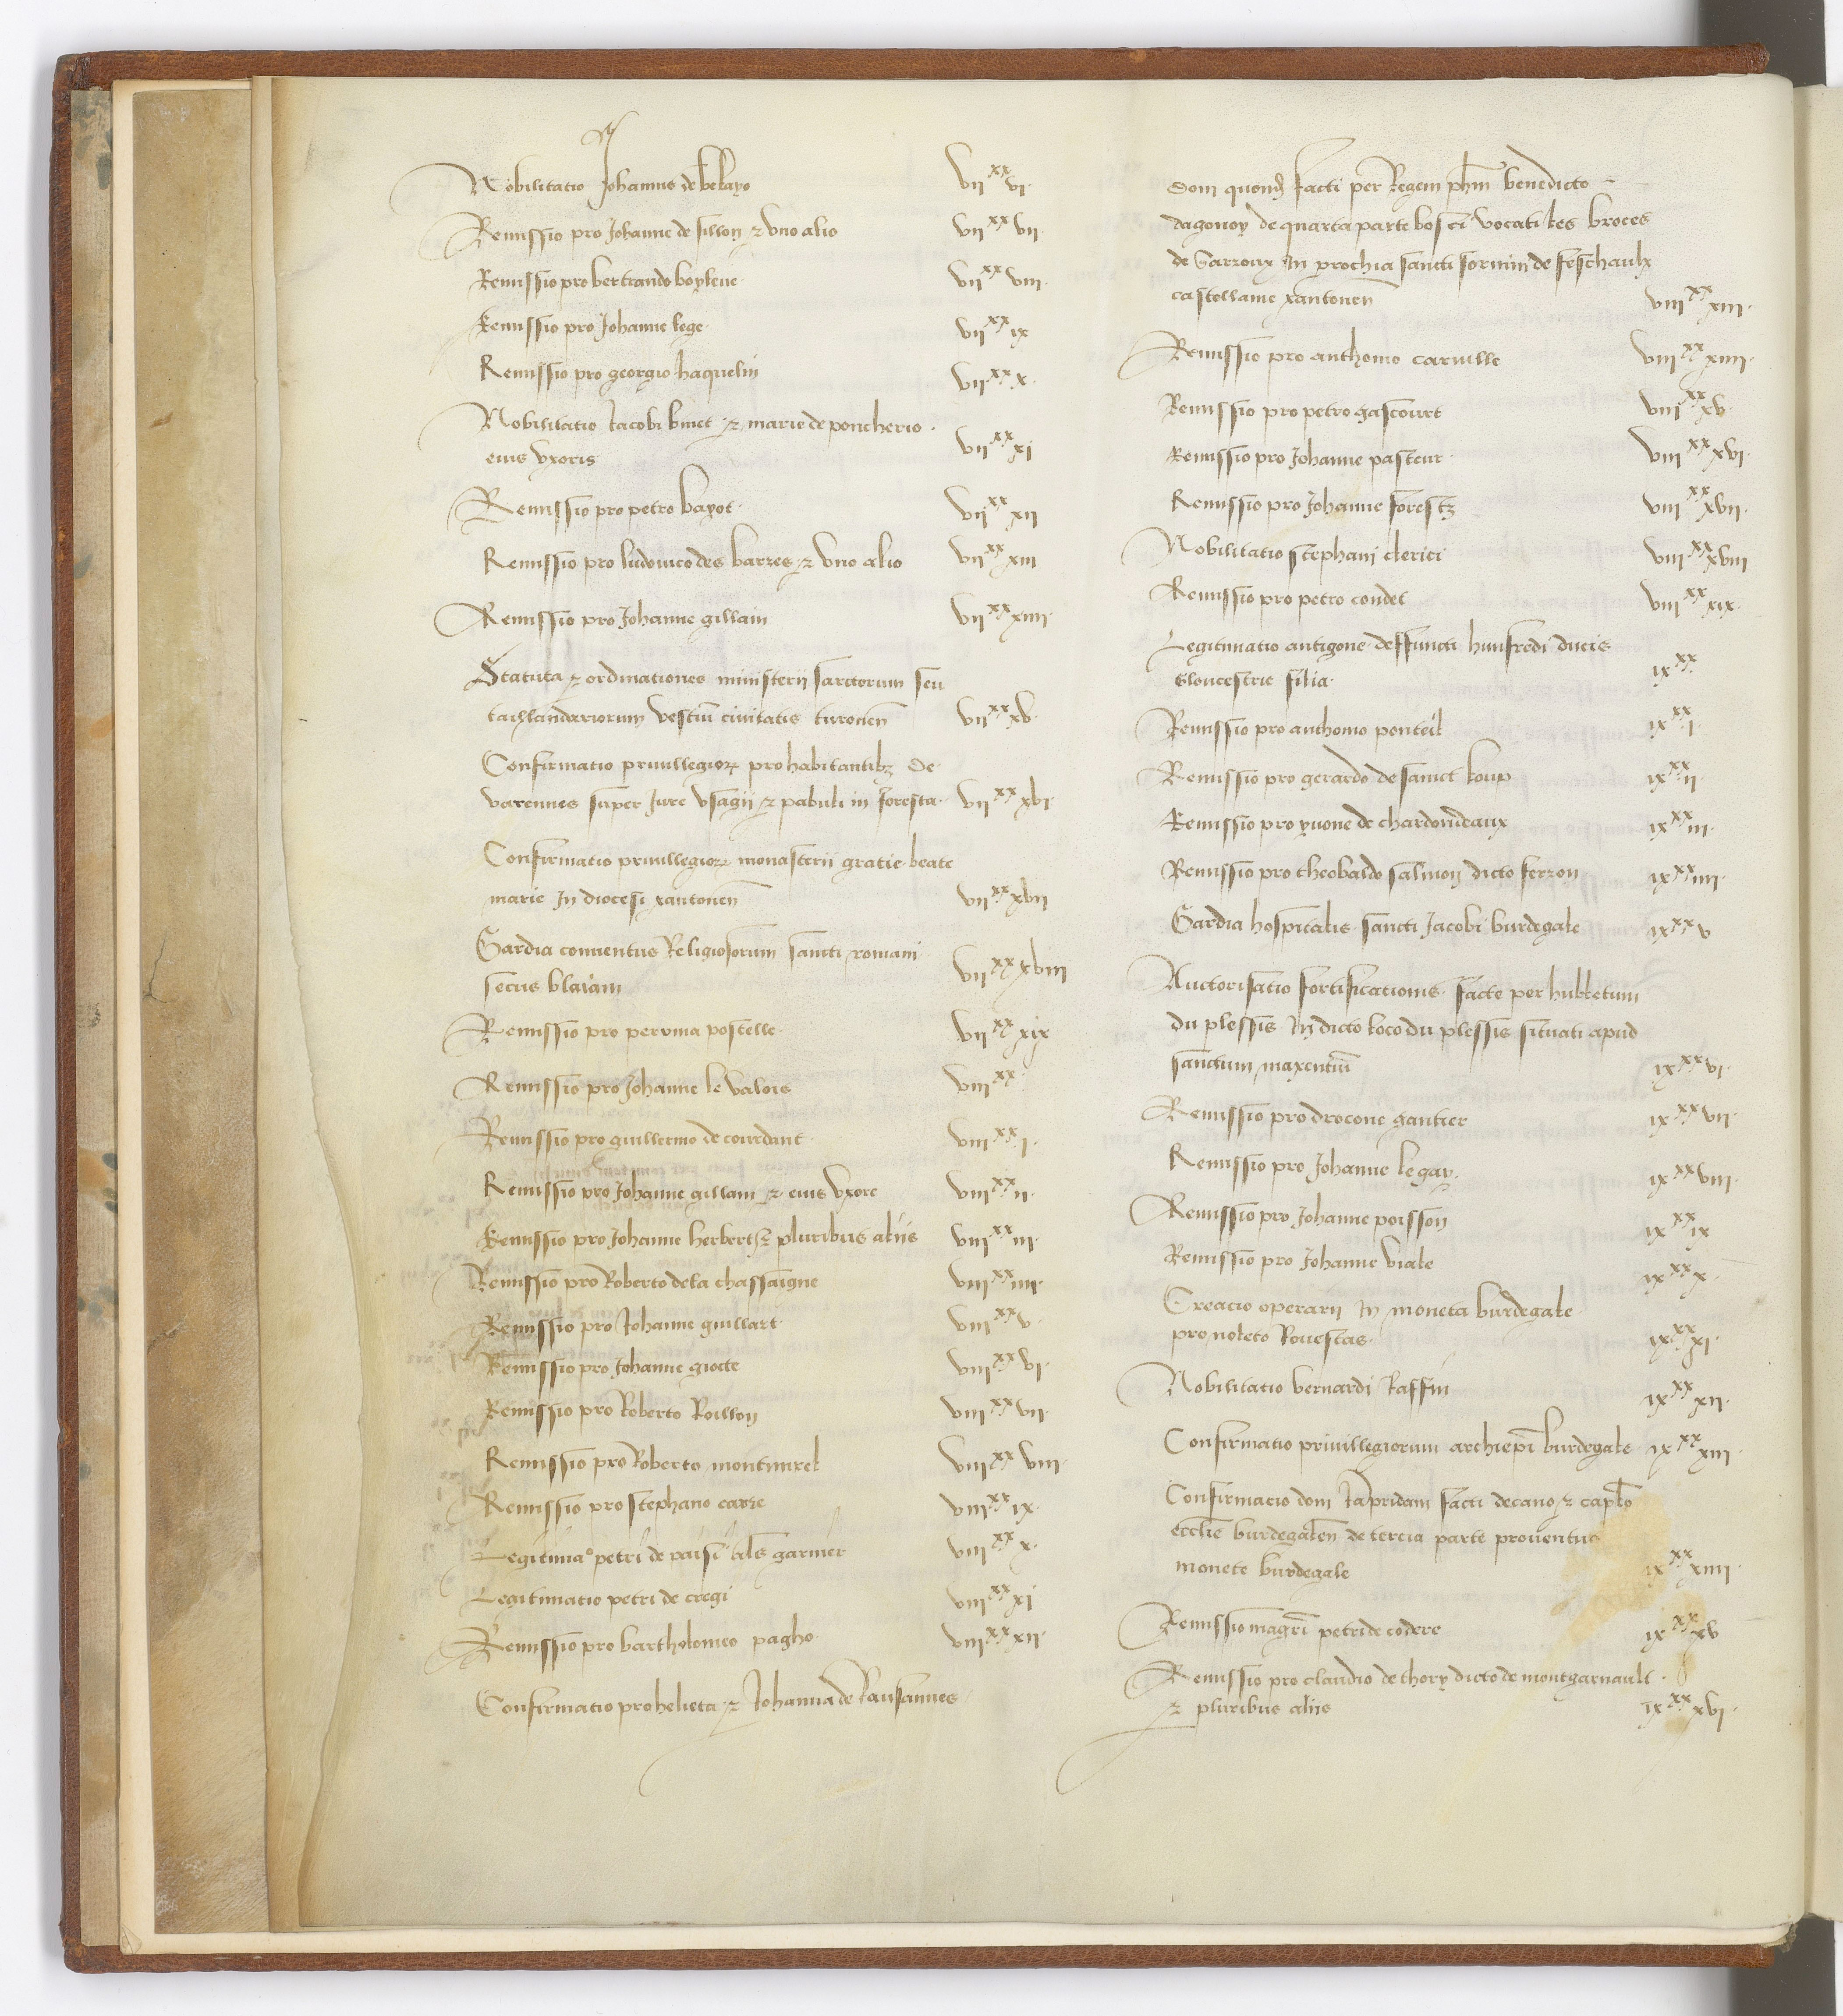 Nobilitatio Johannis de belayo VII^XX VI.
Remissio pro Johanne de sillon & uno alio VII^XX VII.
Remissio pro bertrando boyleue VII^XX VIII.
Remissio pro Johanne lege. VII^XX IX
Remissio pro georgio haquelin VII^XX X.
Nobilitatio Jacobi binet & marie de poncherio.
eius uxoris VII^XX XI
Remissio pro petro bayot. VII^XX XII
Remissio pro ludovico des barres & uno alio VII^XX XIII
Remissio pro Johanne gillain VII^XX XIIII.
Statuta & ordinationes ministerii sartorum seu
taillandariorum vestiu civitatis turonen VII^XX XV.
Confirmatio privillegior pro habitantibz de
varennes super Jure usagii & pabuli in foresta. VII^XX XVI.
Confirmatio privillegior monasterii gratie beate
marie In diocesi xantonen VII^XX XVII
Gardia conventus Religiosorum sancti romani
secus blaiam VII^XX XVIII
Remissio pro perrina postelle. VII^XX XIX
Remissio pro Johanne le valois VIII^XX
Remissio pro guillermo de courdant. VIII^XX I.
Remissio pro Johanne gillain & eius uxore VIII^XX II.
Remissio pro Johanne herbert & pluribus aliis VIII^XX III.
Remissio pro Roberto de la chassaigne VIII^XX IIII.
Remissio pro Johanne guillart VIII^XX V.
Remissio pro Johanne giotte VIII^XX VI.
Remissio pro Roberto Roillon VIII^XX VII.
Remissio pro Roberto montmirel VIII^XX VIII.
Remissio pro stephano carre VIII^XX IX.
Legitima° petri de paisi als garnier VIII^XX X.
Legitimatio petri de cregi VIII^XX XI
Remissio pro bartholomeo pagho. VIII^XX XII.
Confirmatio pro helieta & Johanna de Rausannes
doni quond facti per Regem phm benedicto
dagonoy de quarta parte bosci vocati les broces
de Sarzoux In prochia sancti sornini de seschaulx
castellanie xantonen VIII^XX XIII.
Remissio pro anthonio carville VIII^XX XIIII.
Remissio pro petro gascourt VIII^XX XV.
Remissio pro Johanne pasteur. VIII^XX XVI.
Remissio pro Johanne forestz VIII^XX XVII.
Nobilitatio stephani clerici VIII^XX XVIII
Remissio pro petro condet VIII^XX XIX.
Legitimatio antigone deffuncti hunfredi ducis
Gloucestrie filia. IX^XX
Remissio pro anthonio ponteil IX^XX I.
Remissio pro gerardo de sainct loup IX^XX II.
Remissio pro yvone de chardonneaux IX^XX III.
Remissio pro theobaldo salmon dicto ferron IX^XX IIII.
Gardia hospitalis sancti Jacobi burdegale IX^XX V
Auctorisatio fortificationis facte per huletum
du plessis In dicto loco du plessis situati apud
sanctum maxentiu IX^XX VI.
Remissio pro drocone gautier IX^XX VII.
Remissio pro Johanne le gay. IX^XX VIII.
Remissio pro Johanne poisson IX^XX IX
Remissio pro Johanne viale IX^XX X.
Creacio operarii In moneta burdegale
pro noleto Rouestas. IX^XX XI.
Nobilitatio bernardi Raffin IX^XX XII.
Confirmatio privillegiorum archiepi burdegale IX^XX XIII.
Confirmacio doni facti decano & caplo
ecclie burdegalen de tercia parte proventus
monete burdegale IX^XX XIIII.
Remissio magri petri de codere IX^XX XV
Remissio pro claudio de thory dicto de montgarnault.
& pluribus aliis IX^XX XVI.